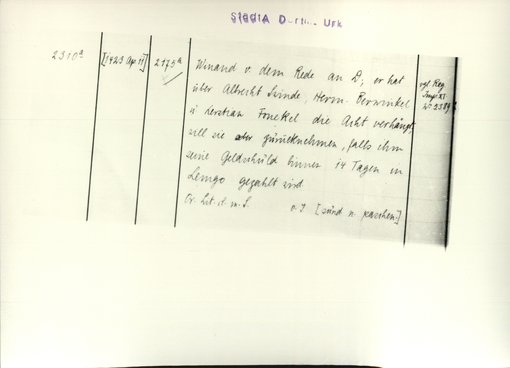 StadtA D Urk
2310a
[1423 Ap. 11]
2175a
Winand v. dem Rede an D; er hat
über Albercht Svinde, Herm. Berwinkel
u Kerstian die Acht verhängt,
will sie aber zurücknehmen, falls ihm
seine Geldschuld binnen 14 Tagen in
Lemgo gezahlt wird
Or. Lit. d. m. S. o J [sünd n. paschen.]
vgl. Reg.
Imp. XI
Nr